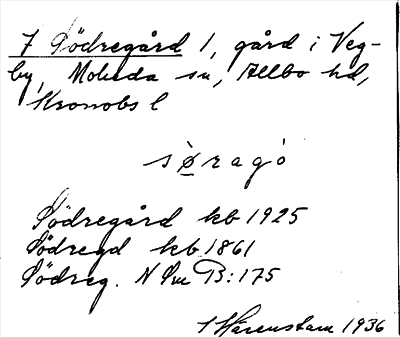 7 Södregård 1, gård i Veg-
by, Moheda sn, Allbo hd,
Kronobs l
sø̀ragó
Södregård kb 1925
Södregd kb 1861
Södreg. N Sm B:175
I Hårenstam 1936